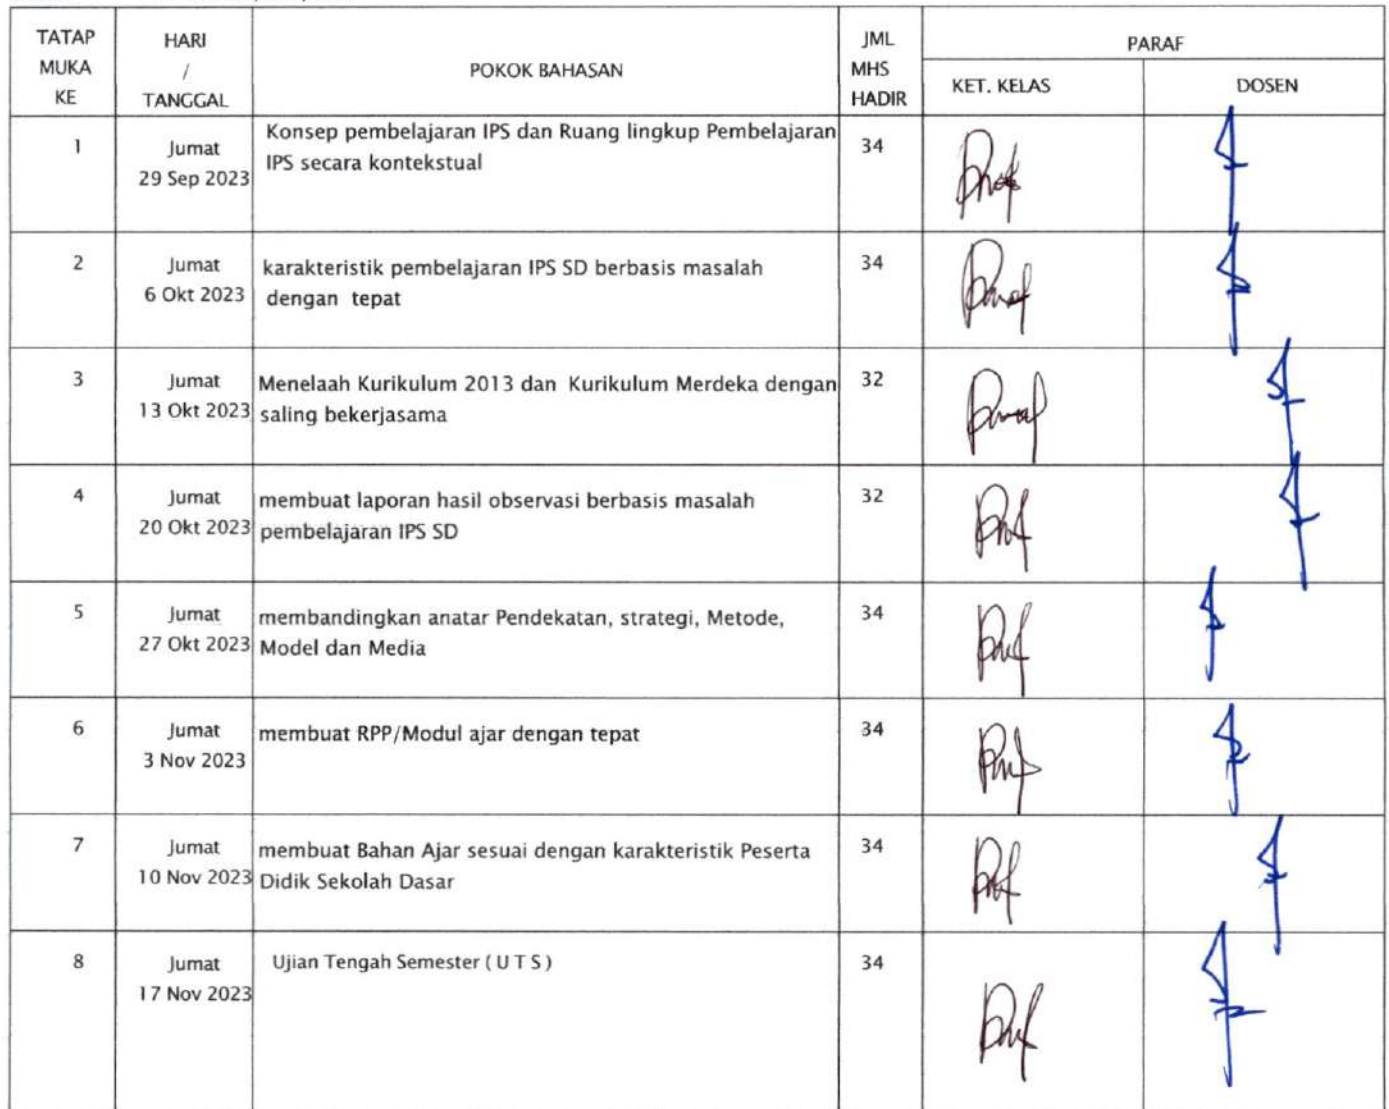 TATAP MUKA KE
HARI / TANGGAL
POKOK BAHASAN
JML MHS HADIR
PARAF
KET. KELAS
DOSEN
1
Jumat
29 Sep 2023
Konsep pembelajaran IPS dan Ruang lingkup Pembelajaran
IPS secara kontekstual
34
2
Jumat
6 Okt 2023
karakteristik pembelajaran IPS SD berbasis masalah
dengan tepat
34
3
Jumat
13 Okt 2023
Menelaah Kurikulum 2013 dan Kurikulum Merdeka dengan
saling bekerjasama
32
4
Jumat
20 Okt 2023
membuat laporan hasil observasi berbasis masalah
pembelajaran IPS SD
32
5
Jumat
27 Okt 2023
membandingkan anatar Pendekatan, strategi, Metode,
Model dan Media
34
6
Jumat
3 Nov 2023
membuat RPP/Modul ajar dengan tepat
34
7
Jumat
10 Nov 2023
membuat Bahan Ajar sesuai dengan karakteristik Peserta
Didik Sekolah Dasar
34
8
Jumat
17 Nov 2023
Ujian Tengah Semester ( U T S )
34